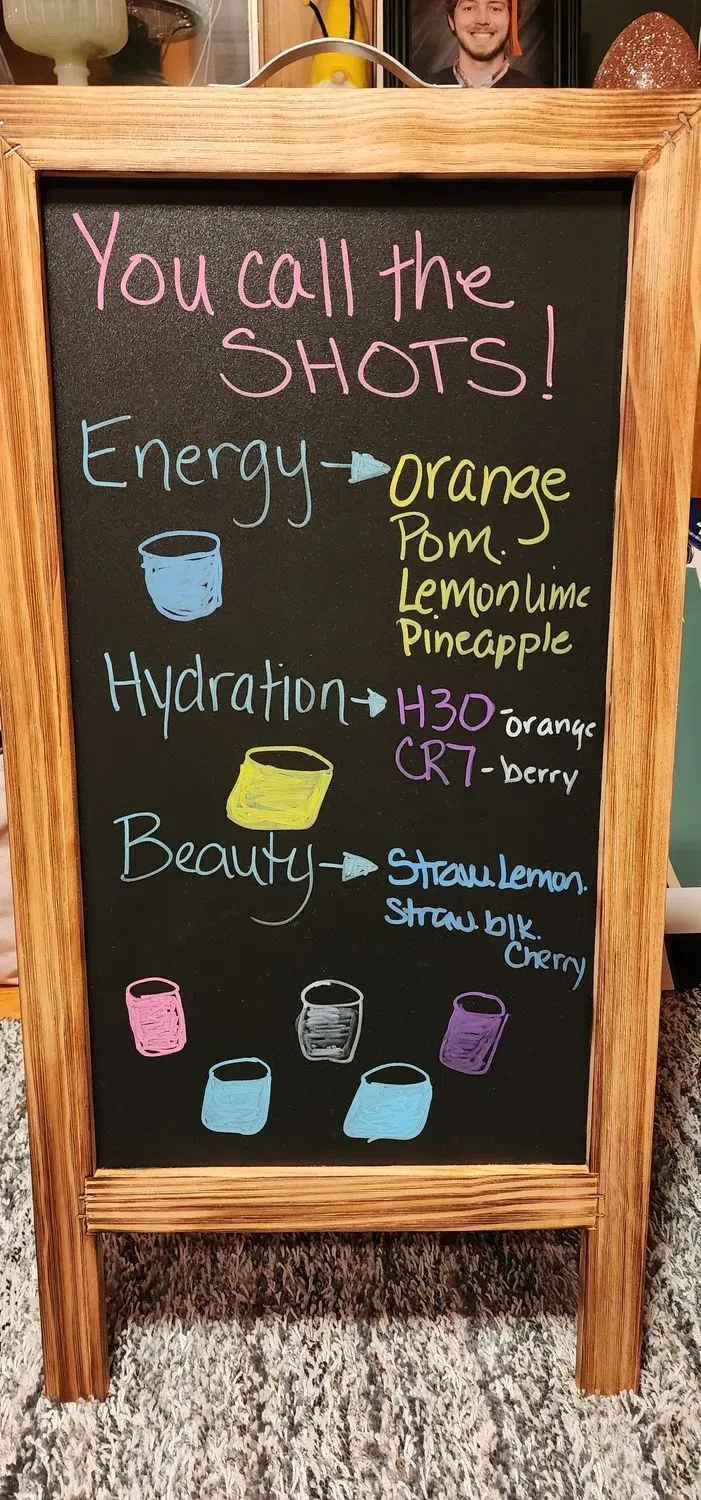 You call the
SHOTS!
Energy → Orange
Pom.
Lemon lime
Pineapple
Hydration → H30 - orange
CR7 - berry
Beauty → Straw. Lemon.
Straw. blk.
Cherry